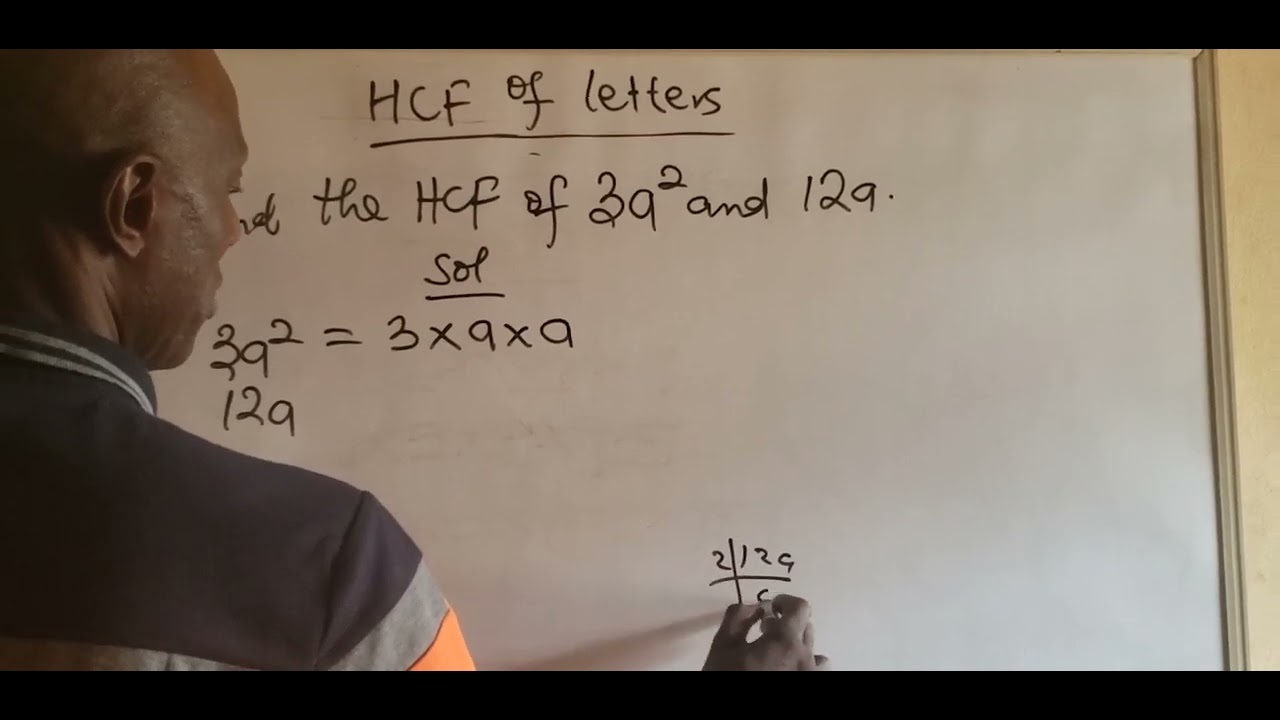 HCF of letters
the HCF of 3a² and 12a.
Sol
3a² = 3×a×a
12a
2|12a